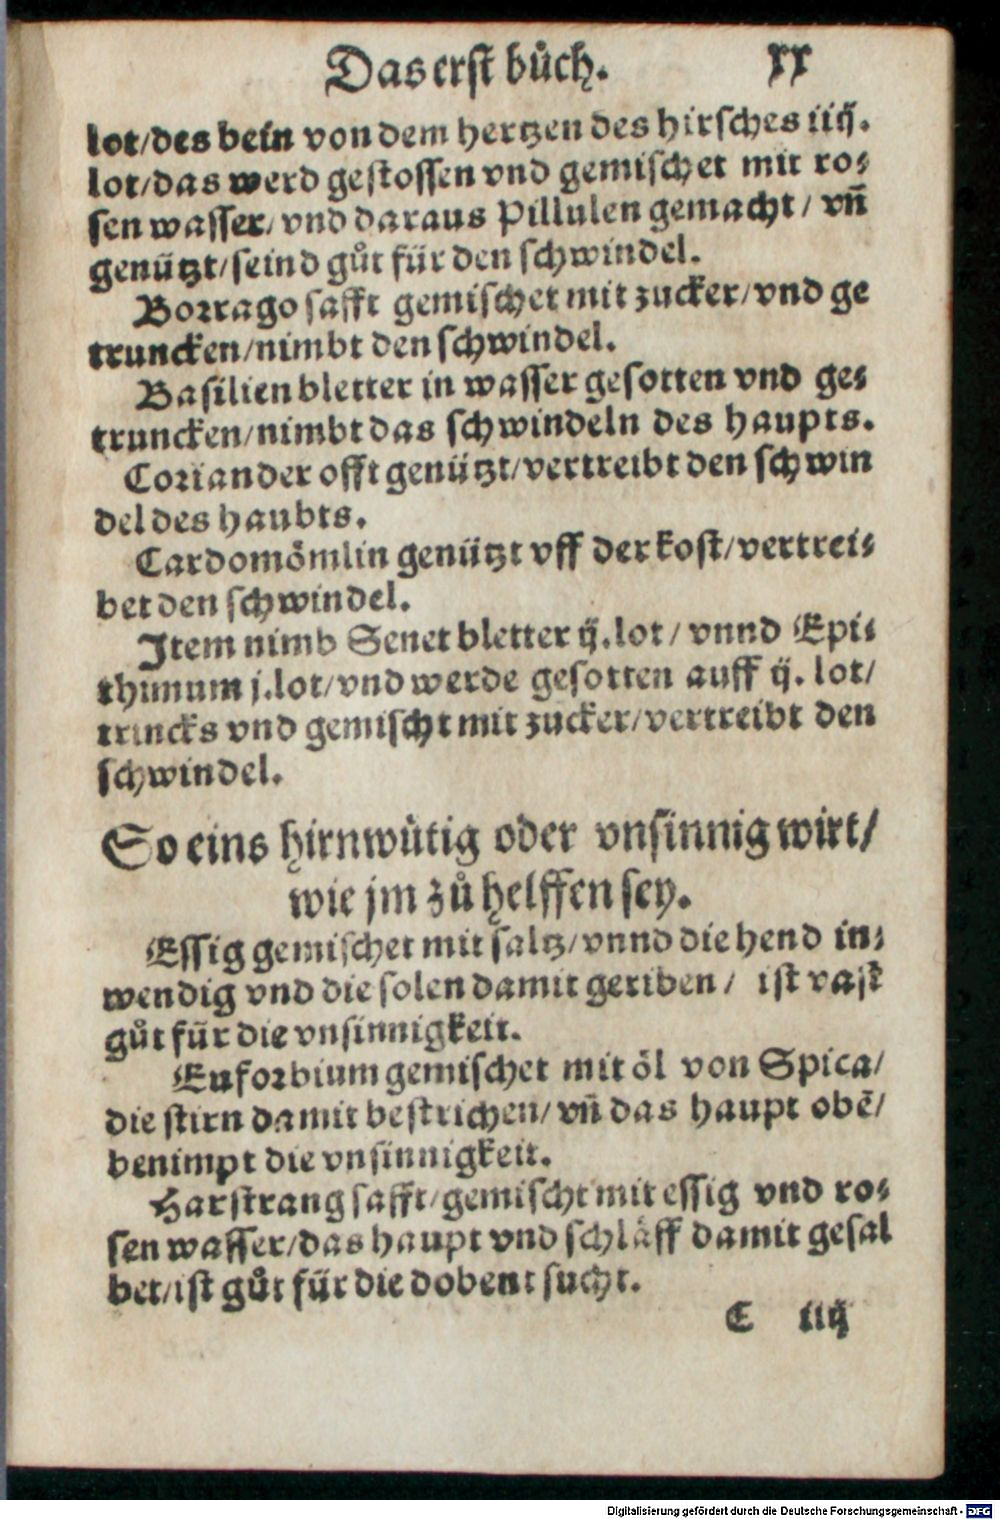 Das erst bůch. xx
lot/des bein von dem hertzen des hirsches iiij.
lot/das werd gestossen vnd gemischet mit ro⸗
sen wasser/vnd daraus Pillulen gemacht/ vn̄
genützt/seind gůt für den schwindel.
Borrago safft gemischet mit zucker/vnd ge
truncken/nimbt den schwindel.
Basilien bletter in wasser gesotten vnd ge⸗
truncken/nimbt das schwindeln des haupts.
Coriander offt genützt/vertreibt den schwin
del des haubts.
Cardomömlin genützt vff der kost/vertrei⸗
bet den schwindel.
Item nimb Senet bletter ij.lot/ vnnd Epi⸗
thimum j.lot/vnd werde gesotten auff ij. lot/
trincks vnd gemischt mit zucker/vertreibt den
schwindel.
So eins hirnwütig oder vnsinnig wirt/
wie jm zů helffen sey.
Essig gemischet mit saltz/vnnd die hend in⸗
wendig vnd die solen damit geriben/ ist vast
gůt für die vnsinnigkeit.
Euforbium gemischet mit öl von Spica/
die stirn damit bestrichen/vn̄ das haupt obē/
benimpt die vnsinnigkeit.
Harstrang safft/gemischt mit essig vnd ro⸗
sen wasser/das haupt vnd schläff damit gesal
bet/ist gůt für die dobent sucht.
C iiij
Digitalisierung gefördert durch die Deutsche Forschungsgemeinschaft - DFG